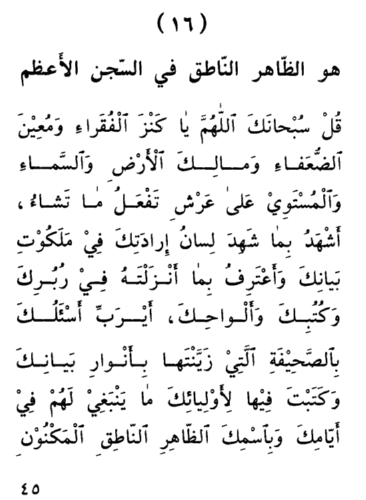 (١٦)
هو الظّاهر النّاطق في السّجن الأَعظم
قُلْ سُبْحانَكَ اللّٰهُمَّ يٰا كَنْزَ الْفُقَراءِ وَمُعِيْنَ
الضُّعَفاءِ وَمالِكَ الْأَرْضِ وَالسَّماءِ
وَالْمُسْتَوِيْ عَلىٰ عَرْشِ تَفْعَلُ مٰا تَشاءُ،
أَشْهَدُ بِمٰا شَهِدَ لِسانُ إِرادَتِكَ فِيْ مَلَكُوْتِ
بَيانِكَ وَأَعْتَرِفُ بِمٰا أَنْزَلْتَهُ فِيْ زُبُرِكَ
وَكُتُبِكَ وَأَلْواحِكَ، أَيْرَبِّ أَسْئَلُكَ
بِالصَّحِيْفَةِ الَّتِيْ زَيَّنْتَها بِأَنْوارِ بَيانِكَ
وَكَتَبْتَ فِيْها لِأَوْلِيائِكَ مٰا يَنْبَغِيْ لَهُمْ فِيْ
أَيّامِكَ وَبِاسْمِكَ الظّاهِرِ النّاطِقِ الْمَكْنُوْنِ
٤٥